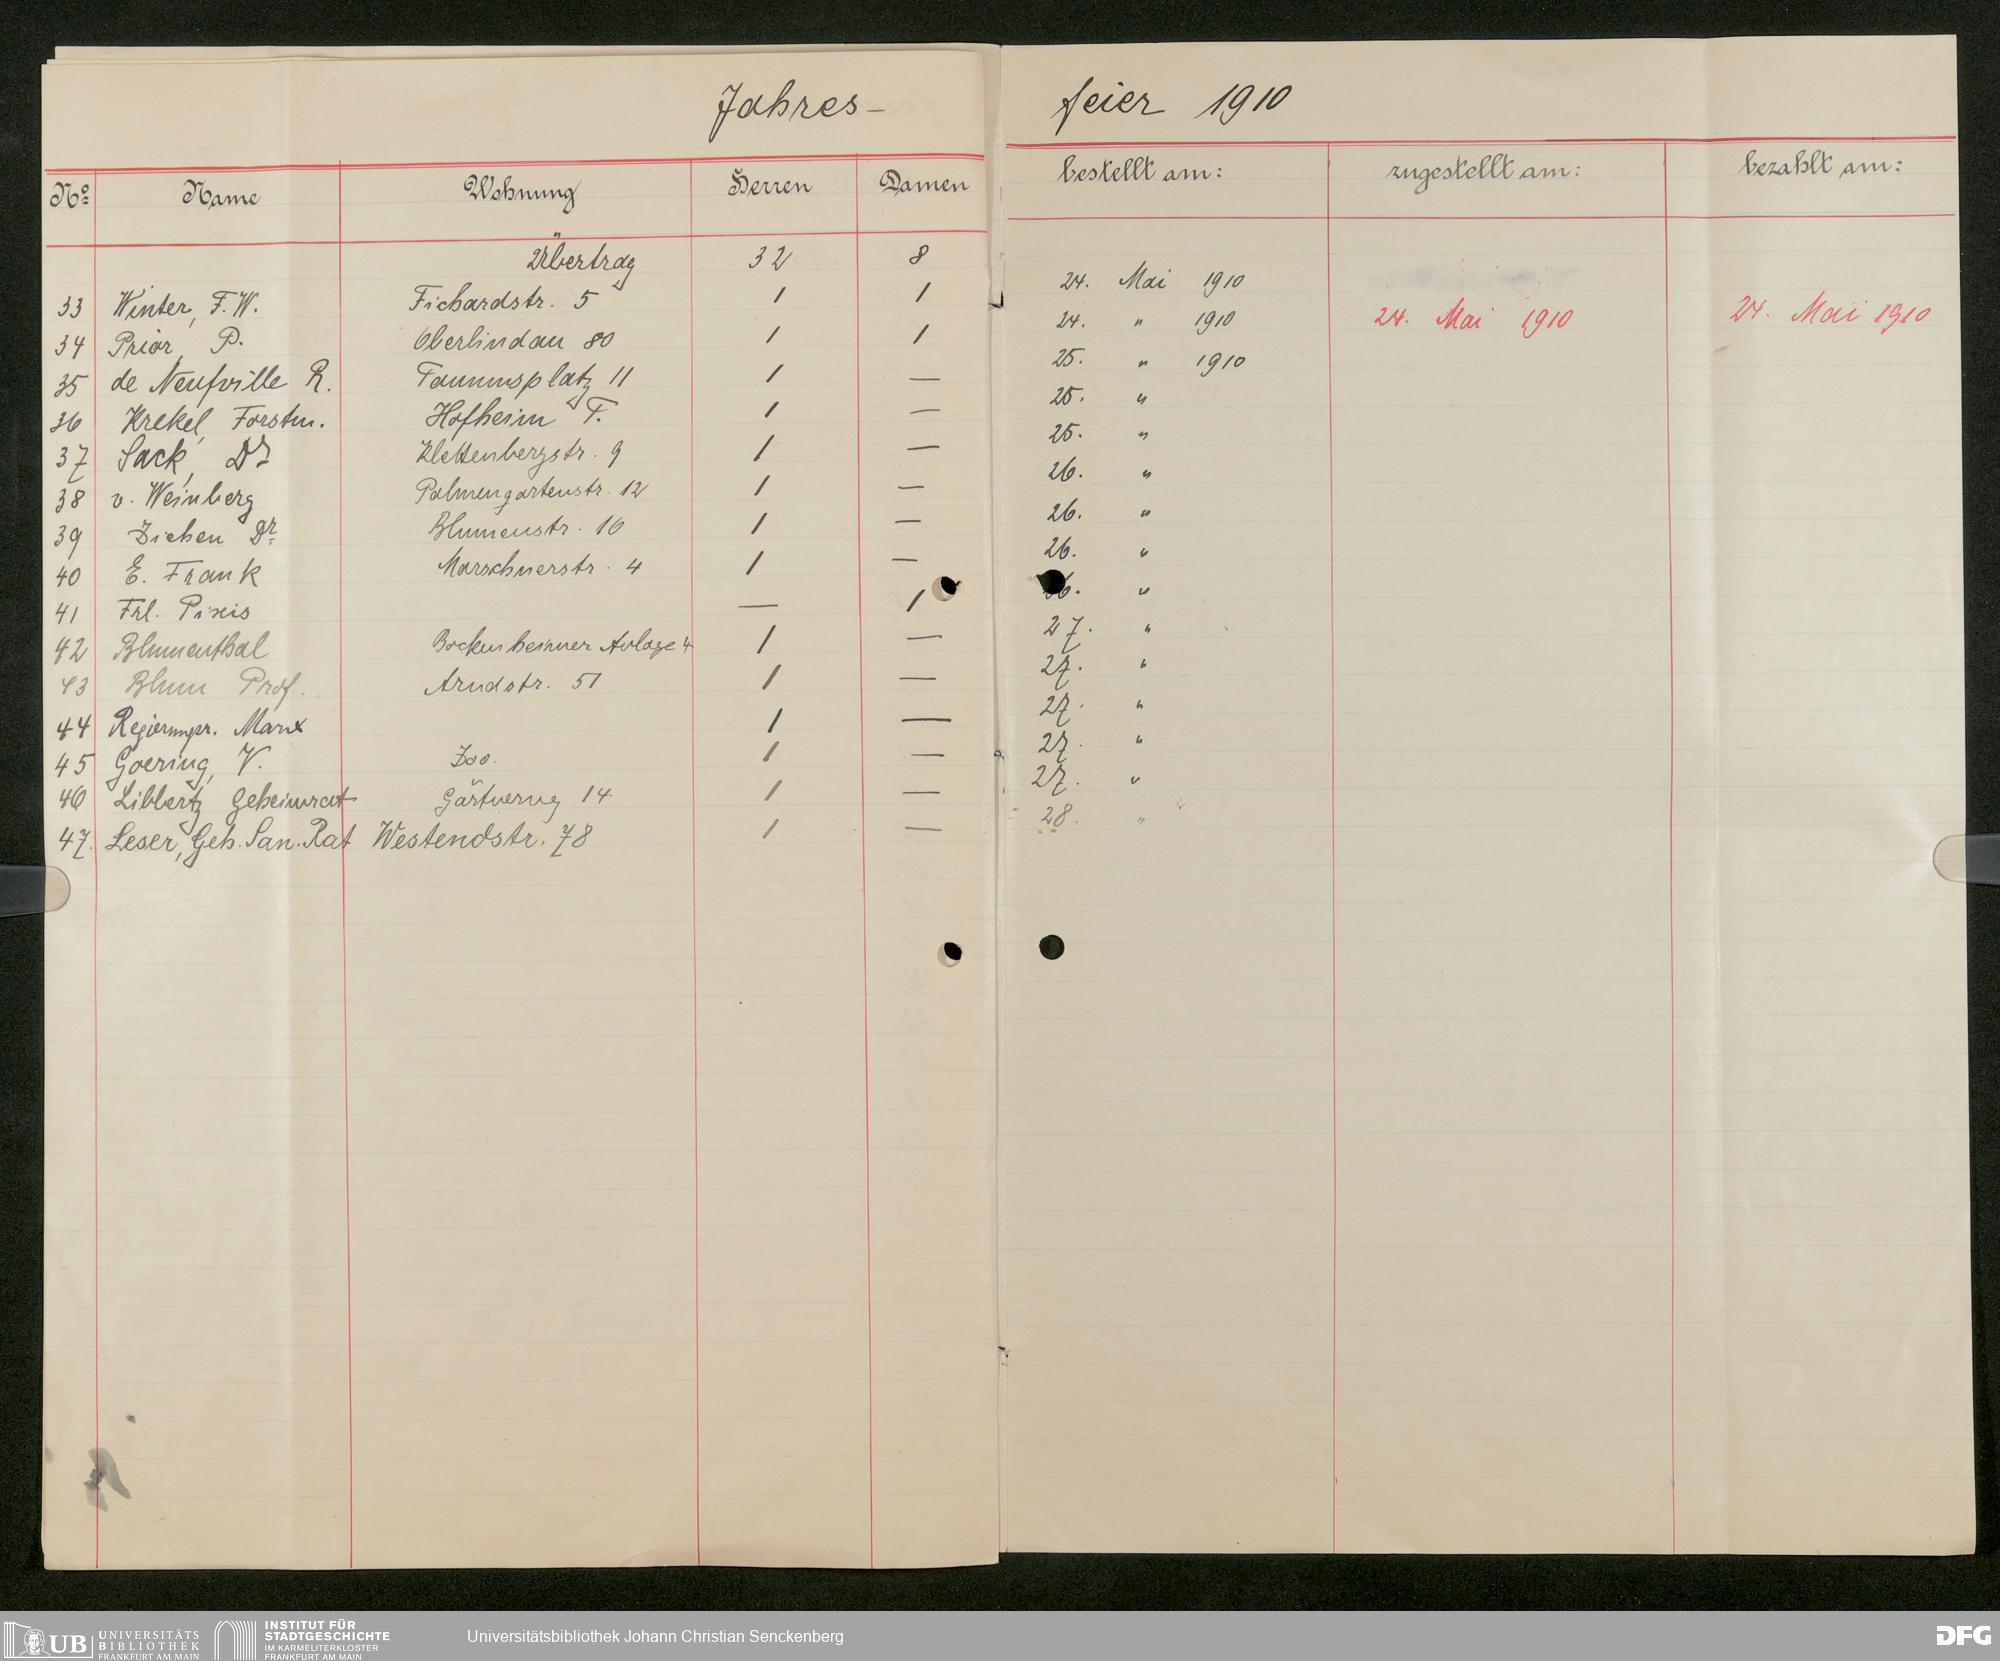 Jahres- feier 1910
No Name Wohnung Herren Damen bestellt am: zugestellt am: bezahlt am:
Übertrag 32 8
33 Winter, F. W. Fichardstr. 5 1 1 24. Mai 1910
34 Prior, P. Oberlindau 80 1 1 24. " 1910 24. Mai 1910 24. Mai 1910
35 de Neufville R. Taunusplatz 11 1 — 25. " 1910
36 Krekel, Forstm. Hofheim T. 1 — 25. "
37 Sack, Dr Klettenbergstr. 9 1 — 25. "
38 v. Weinberg Palmengartenstr. 12 1 — 26. "
39 Ziehen Dr. Blumenstr. 16 1 — 26. "
40 E. Frank Marschnerstr. 4 1 — 26. "
41 Frl. Pixis — 1 26. "
42 Blumenthal Bockenheimer Anlage 4 1 — 27. "
43 Blum Prof. Arndstr. 51 1 — 27. "
44 Regierungsr. Marx 1 — 27. "
45 Goering, V. Zoo. 1 — 27. "
46 Libbertz Geheimrat Gärtnerweg 14 1 — 27. "
47. Leser, Geh. San. Rat Westendstr. 78 1 — 28. "
UB UNIVERSITÄTS BIBLIOTHEK FRANKFURT AM MAIN
INSTITUT FÜR STADTGESCHICHTE IM KARMELITERKLOSTER FRANKFURT AM MAIN
Universitätsbibliothek Johann Christian Senckenberg
DFG